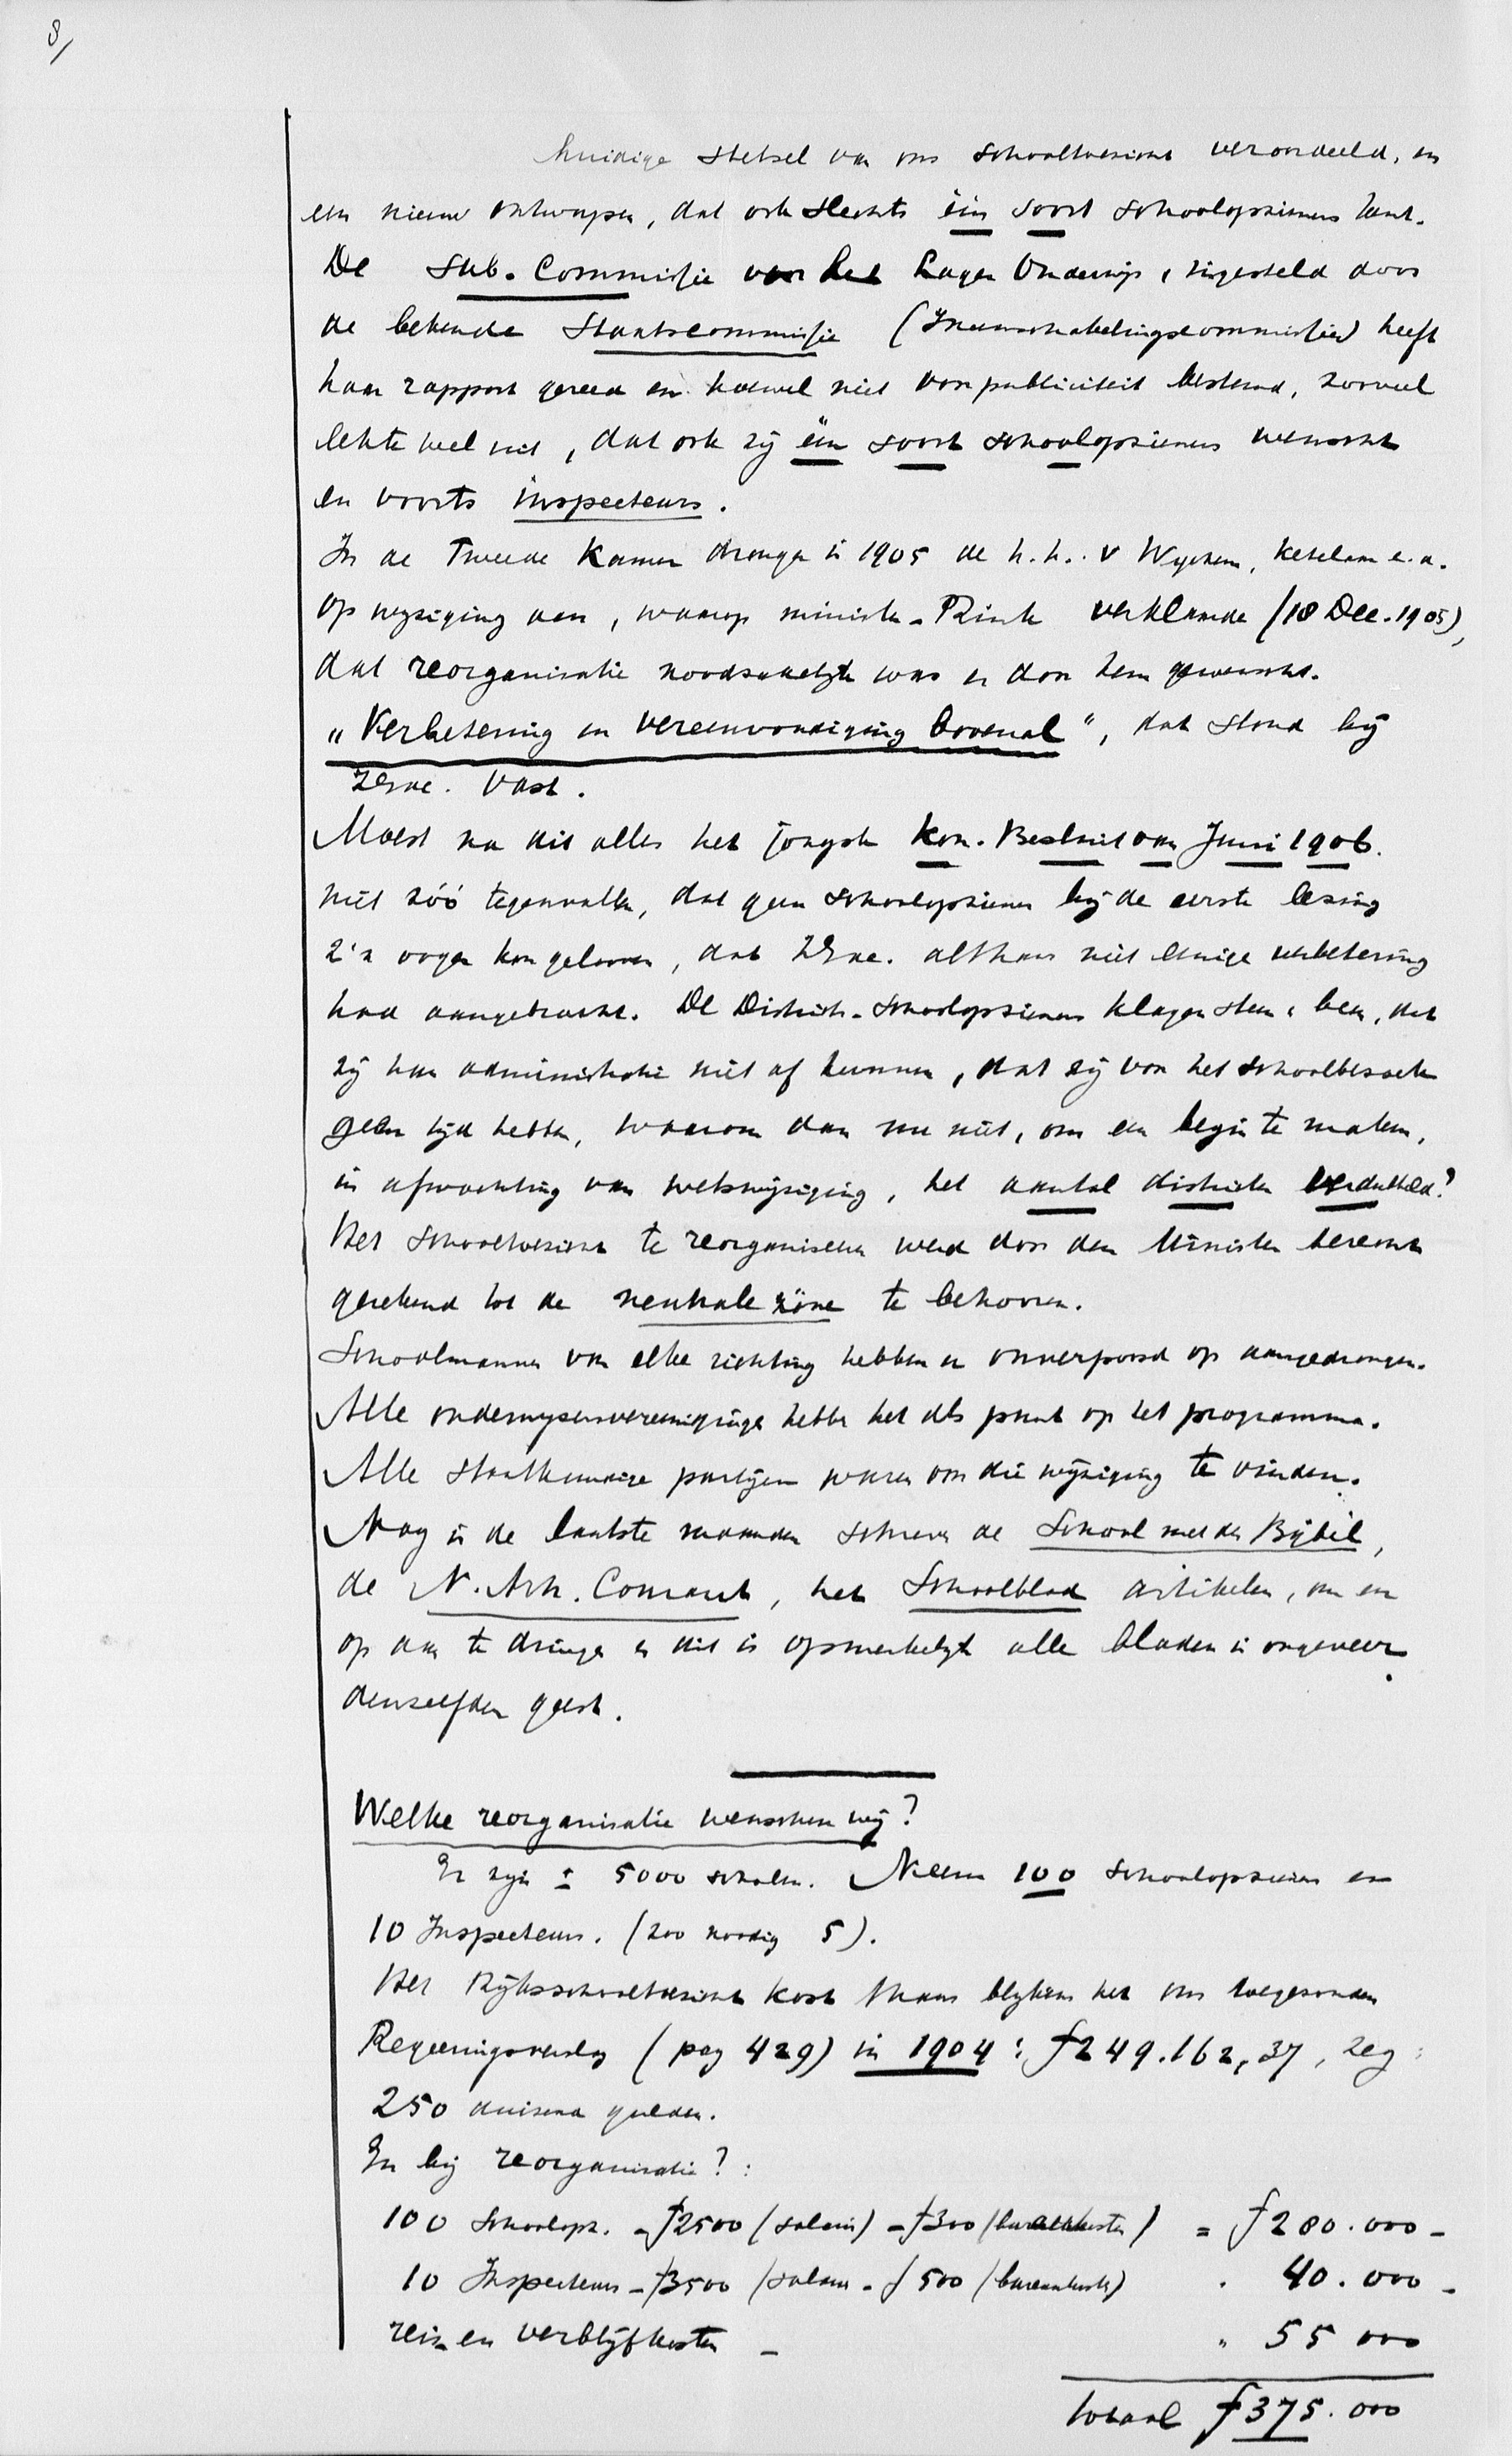 8/
huidige stelsel van ons schooltoezicht veroordeeld, en
een nieuw ontworpen, dat ook slechts één soort schoolopzieners kent.
De Sub-Commissie voor het Lager Onderwijs, ingesteld door
de bekende Staatscommissie (Ineenschakelingscommissie) heeft
haar rapport gereed en hoewel niet voor publiciteit bestemd, zooveel
lekte wel uit, dat ook zij één soort schoolopzieners wenscht
en voorts inspecteurs.
In de Tweede Kamer drongen in 1905 de h.h. v Wijchen, Ketelaar e.a.
op wijziging aan, waarop minister Rink verklaarde (18 Dec. 1905),
dat reorganisatie noodzakelijk was en door hem gewenscht.
„Verbetering en vereenvoudiging bovenal", dat stond bij
ZExc. vast.
Moest na dit alles het jongste Kon. Besluit van Juni 1906.
niet zóó tegenvallen, dat geen schoolopziener bij de eerste lezing
z'n oogen kon gelooven, dat ZExc. althans niet eenige verbetering
had aangebracht. De District-schoolopzieners klagen steen en been, dat
zij hun administratie niet af kunnen, dat zij voor het schoolbezoek
geen tijd hebben, waarom dan nu niet, om een begin te maken,
in afwachting van wetswijziging, het aantal districten verdubbeld?
Het schooltoezicht te reorganiseeren werd door den Minister terecht
gerekend tot de neutrale zône te behooren.
Schoolmannen van elke richting hebben er onverpoosd op aangedrongen.
Alle onderwijzersvereenigingen hebben het als punt op het programma.
Alle staatkundige partijen waren voor die wijziging te vinden.
Nog in de laatste maanden schreven de School met den Bijbel,
de N. Arh. Courant, het Schoolblad artikelen, om er
op aan te dringen en dit is opmerkelijk alle bladen in ongeveer
denzelfden geest.
Welke reorganisatie wenschen wij?
Er zijn ± 5000 scholen. Neem 100 schoolopzieners en
10 Inspecteurs. (zoo noodig 5).
Het Rijksschooltoezicht kost thans blijkens het ons toegezonden
Regeeringsverslag (pag 429) in 1904: f249.162,37, zeg:
250 duizend gulden.
En bij reorganisatie?:
100 Schoolopz. - f2500 (salaris) - f300 (bureaukosten) = f280.000 -
10 Inspecteurs - f3500 (salaris - f500 (bureaukosten) " 40.000 -
reis en verblijfkosten - " 55 000
totaal f375.000